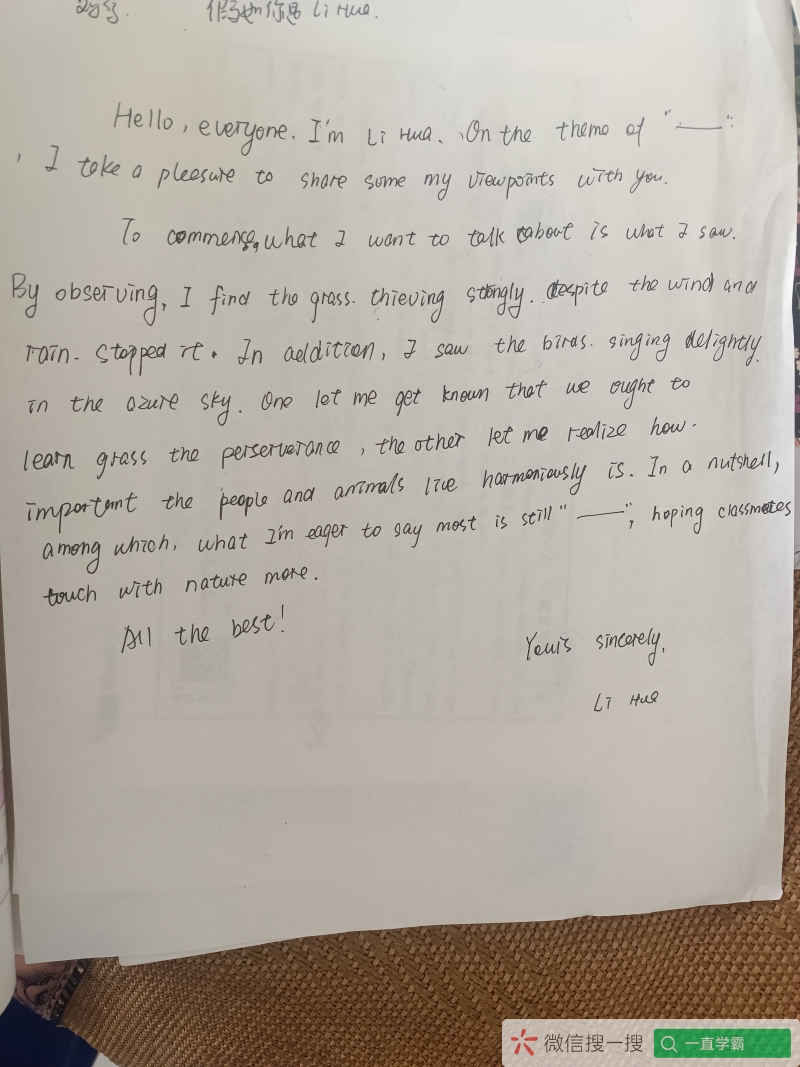 假如你是 Li Hua.
Hello, everyone. I'm Li Hua. On the theme of "——".
, I take a pleasure to share some my viewpoints with you.
To commense, what I want to talk about is what I saw.
By observing, I find the grass. thieving stongly. despite the wind and
rain. stopped it. In addition, I saw the birds. singing delightly
in the azure sky. One let me get known that we ought to
learn grass the perserverance, the other let me realize how.
important the people and animals live harmoniously is. In a nutshell,
among which, what I'm eager to say most is still "——", hoping classmates
touch with nature more.
All the best!
Yours sincerely,
Li Hua
微信搜一搜
一直学霸